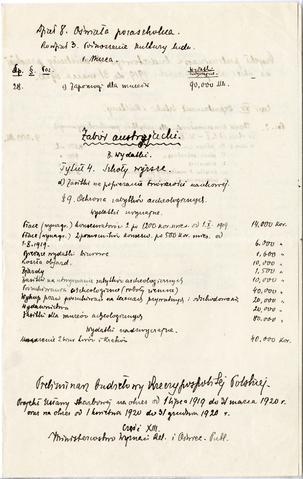 Dział 8. Oświata pozaszkolna.
Rozdział 3. Podnoszenie kultury ludu.
1. Muzea.
Lp. § Poz. Wydatki
28. 1) Zapomogi dla muzeów 90,000 Mk.
Zabór austrjacki.
B. Wydatki.
Tytuł 4. Szkoły wyższe.
d) Zasiłki na popieranie twórczości naukowej.
§ 9. Ochrona zabytków archeologicznych.
Wydatki zwyczajne.
Płace (wynagr.) konserwatorów 2 po 1200 kor. mies. od 1919 14,000 Kor.
Płace (wynagr.) 2 pomocników konserw. po 500 kor. mies. od
1.8.1919. 6.000
wydatki biurowe 1,600
Koszta objazd. 10,000
Zjazdy 1,500
Zasiłki na utrzymanie zabytków archeologicznych 10,000
Poszukiwania archeologiczne (roboty ziemne) 40,000
Wykup prac poszukiwań na terenach prywatnych i odszkodowania 20,000
Wydawnictwa 20,000
Zasiłki dla muzeów archeologicznych 80,000
Wydatki nadzwyczajne.
Lwów i Kraków 40.000 Kor.
Preliminarz budżetowy Rzeczypospolitej Polskiej.
Projekt Ustawy skarbowej na okres od 1 lipca 1919 do 31 marca 1920 r.
oraz na okres od 1 kwietnia 1920 do 31 grudnia 1920 r.
Część XIII.
Ministerstwo Wyznań Rel. i Oświec. Publ.